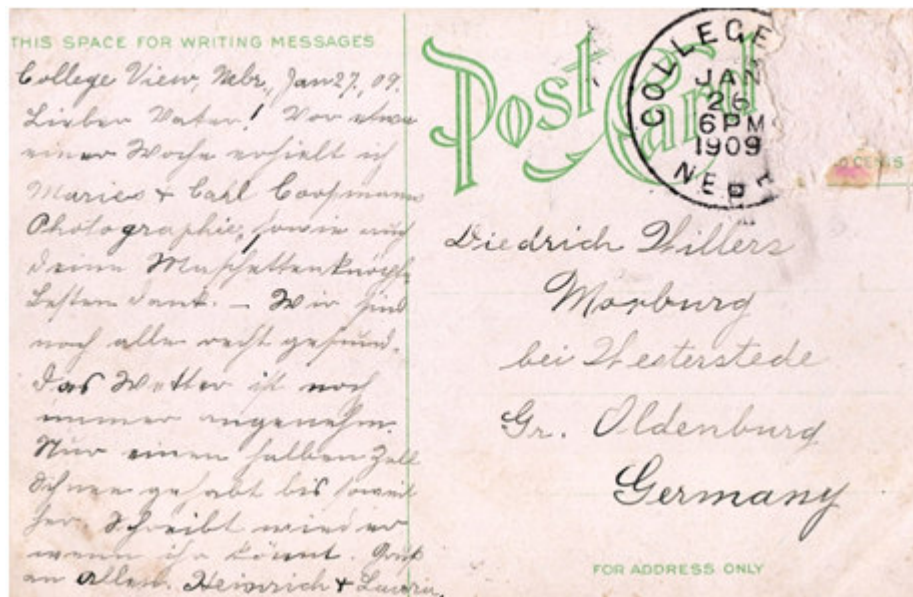 THIS SPACE FOR WRITING MESSAGES
College View, Nebr., Jan 27, 09.
Lieber Vater! Vor etwa
einer Woche erhielt ich
Maries + Carl
Photographie, sowie auch
deine Manschettenknöpfe
Besten Dank. – Wir sind
noch alle recht gesund.
Das Wetter ist noch
immer angenehm.
Nur einen halben Zoll
Schnee gehabt bis soweit
her. Schreibt wieder
wenn ihr könnt. Gruß
an Allen. Heinrich +
Post Card
COLLEGE
JAN
26
6 PM
1909
Diedrich Willers
Moorburg
bei Westerstede
Gr. Oldenburg
Germany
FOR ADDRESS ONLY